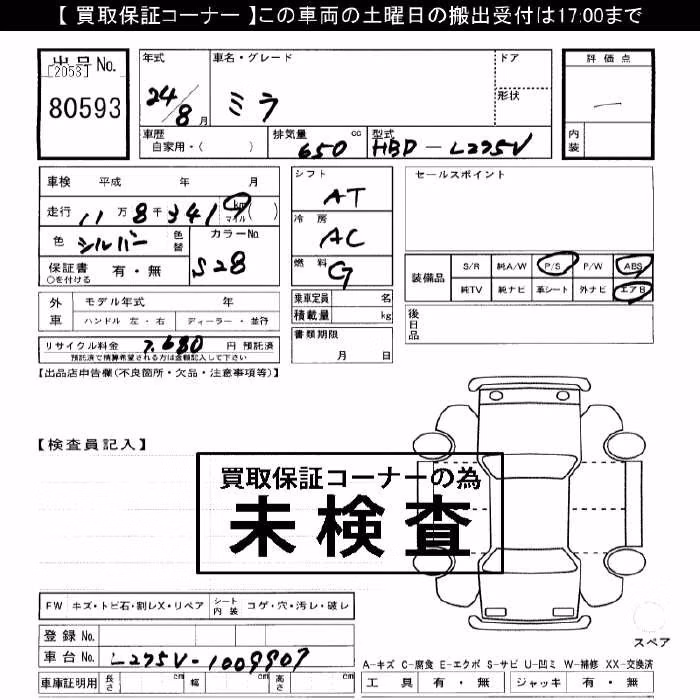 【 買取保証コーナー 】この車両の土曜日の搬出受付は17:00まで
出品No.
[2053]
80593
年式
24/8月
車名・グレード
ミラ
ドア
形状
評価点
内装
車歴
自家用・( )
排気量 cc
650
型式
HBD-L275V
車検 平成 年 月
走行 11万8千341 km マイル ( )
色 シルバー 色替
カラーNo.
S28
保証書 有・無
○を付ける
シフト
AT
冷房
AC
燃料
G
セールスポイント
装備品 S/R 純A/W P/S P/W ABS
純TV 純ナビ 革シート 外ナビ エアB
外車 モデル年式 年
ハンドル 左・右 ディーラー・並行
乗車定員 名
積載量 kg
後日品
リサイクル料金 7,680 円 預託済
預託済で精算希望される方は金額記入して下さい
書類期限
月 日
【出品店申告欄(不良箇所・欠品・注意事項等)】
【検査員記入】
買取保証コーナーの為
未検査
FW キズ・トビ石・割レX・リペア シート内装 コゲ・穴・汚レ・破レ
登録No.
車台No. L275V-1009907
車庫証明用 長さ cm 幅 cm 高さ cm
スペア
A-キズ C-腐食 E-エクボ S-サビ U-凹ミ W-補修 XX-交換済
工具 有・無 ジャッキ 有・無